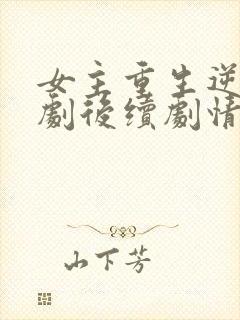 女主重生逆
劇後續劇情
山下芳